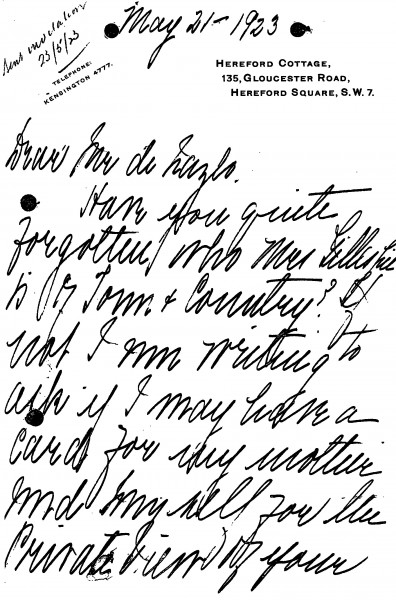 May 21 - 1923
Sent invitation
23/5/23
TELEPHONE:
KENSINGTON 4777.
HEREFORD COTTAGE,
135, GLOUCESTER ROAD,
HEREFORD SQUARE, S.W. 7.
Dear Mr de Lazlo.
Have you quite
forgotten who Mrs
is of Town & Country? If
not I am writing to
ask if I may have a
card for my mother
and myself for the
Private View of your